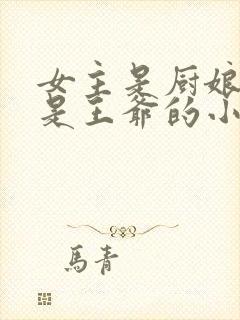 女主是厨娘
是王爷的小
馬青